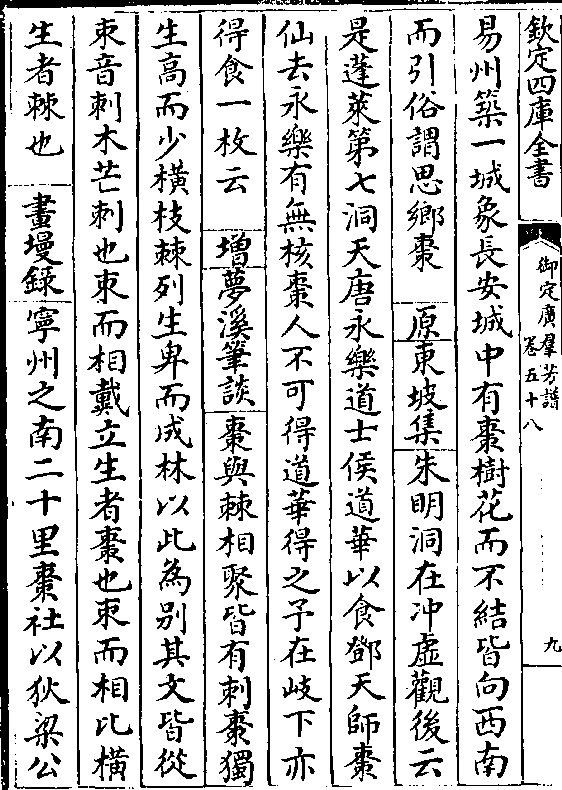 欽定四庫全書
御定廣羣芳譜
卷五十八
九
易州築一城象長安城中有棗樹花而不結皆向西南
而引俗謂思鄉棗 原東坡集朱明洞在冲虛觀後云
是蓬萊第七洞天唐永樂道士侯道華以食鄧天師棗
仙去永樂有無核棗人不可得道華得之予在岐下亦
得食一枚云 增夢溪筆談棗與棘相聚皆有刺棗獨
生高而少橫枝棘列生卑而成林以此為别其文皆從
朿音刺木芒刺也朿而相戴立生者棗也朿而相比橫
生者棘也 畫墁錄寧州之南二十里棗社以狄梁公